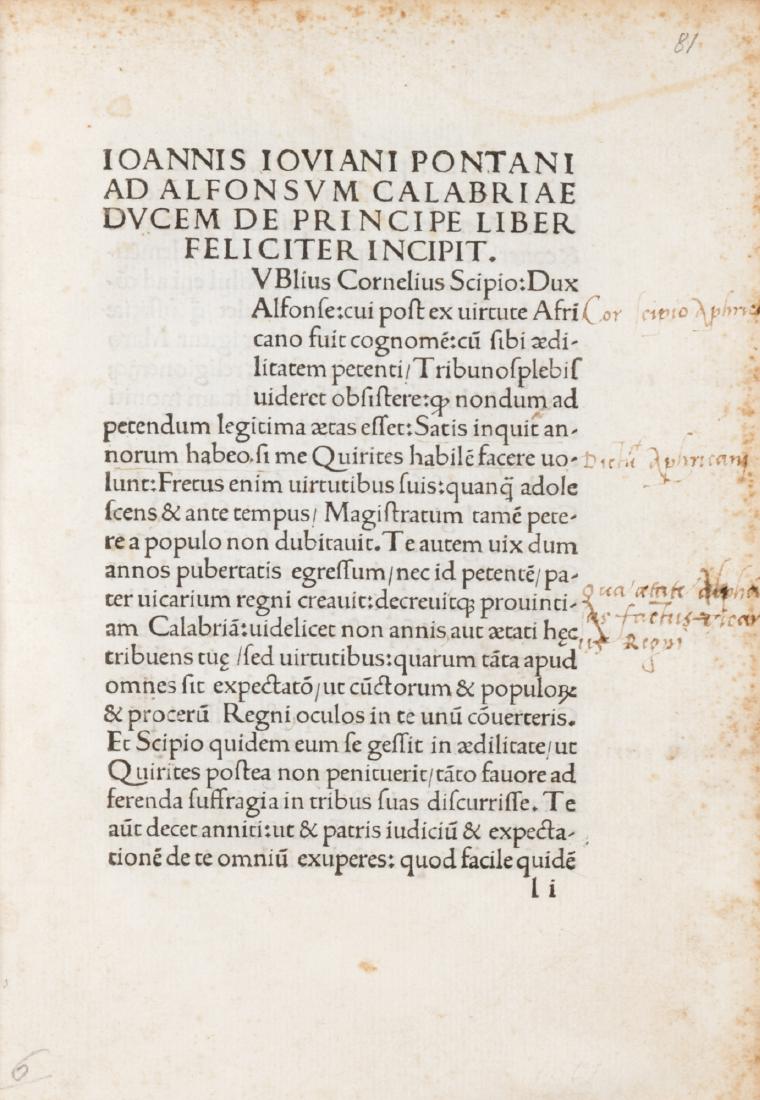 81
IOANNIS IOVIANI PONTANI
AD ALFONSVM CALABRIAE
DVCEM DE PRINCIPE LIBER
FELICITER INCIPIT.
VBlius Cornelius Scipio:Dux
Alfonſe:cui poſt ex uirtute Afri
Cor scipio Aphric
cano fuit cognomē:cū ſibi ædi-
litatem petenti/Tribunoſplebiſ
uideret obſiſtere:ꝙ nondum ad
petendum legitima ætas eſſet:Satis inquit an-
norum habeo.ſi me Quirites habilē facere uo-
Dictū Aphricani
lunt:Fretus enim uirtutibus ſuis:quanq̄ adole
ſcens & ante tempus/ Magiſtratum tamē pete-
re a populo non dubitauit.Te autem uix dum
annos pubertatis egreſſum/nec id petentē/pa-
qua ætate alpho
ter uicarium regni creauit:decreuitqꝫ prouinti-
factus uicar
am Calabriā:uidelicet non annis aut ætati hęc
ius Regni
tribuens tuę /ſed uirtutibus:quarum tāta apud
omnes ſit expectatō/ut cūctorum & populoꝝ
& procerū Regni oculos in te unū cōuerteris.
Et Scipio quidem eum ſe geſſit in ædilitate/ut
Quirites poſtea non penituerit/tāto fauore ad
ferenda ſuffragia in tribus ſuas diſcurriſſe. Te
aūt decet anniti:ut & patris iudiciū & expecta-
tionē de te omniū exuperes: quod facile quidē
l i
6